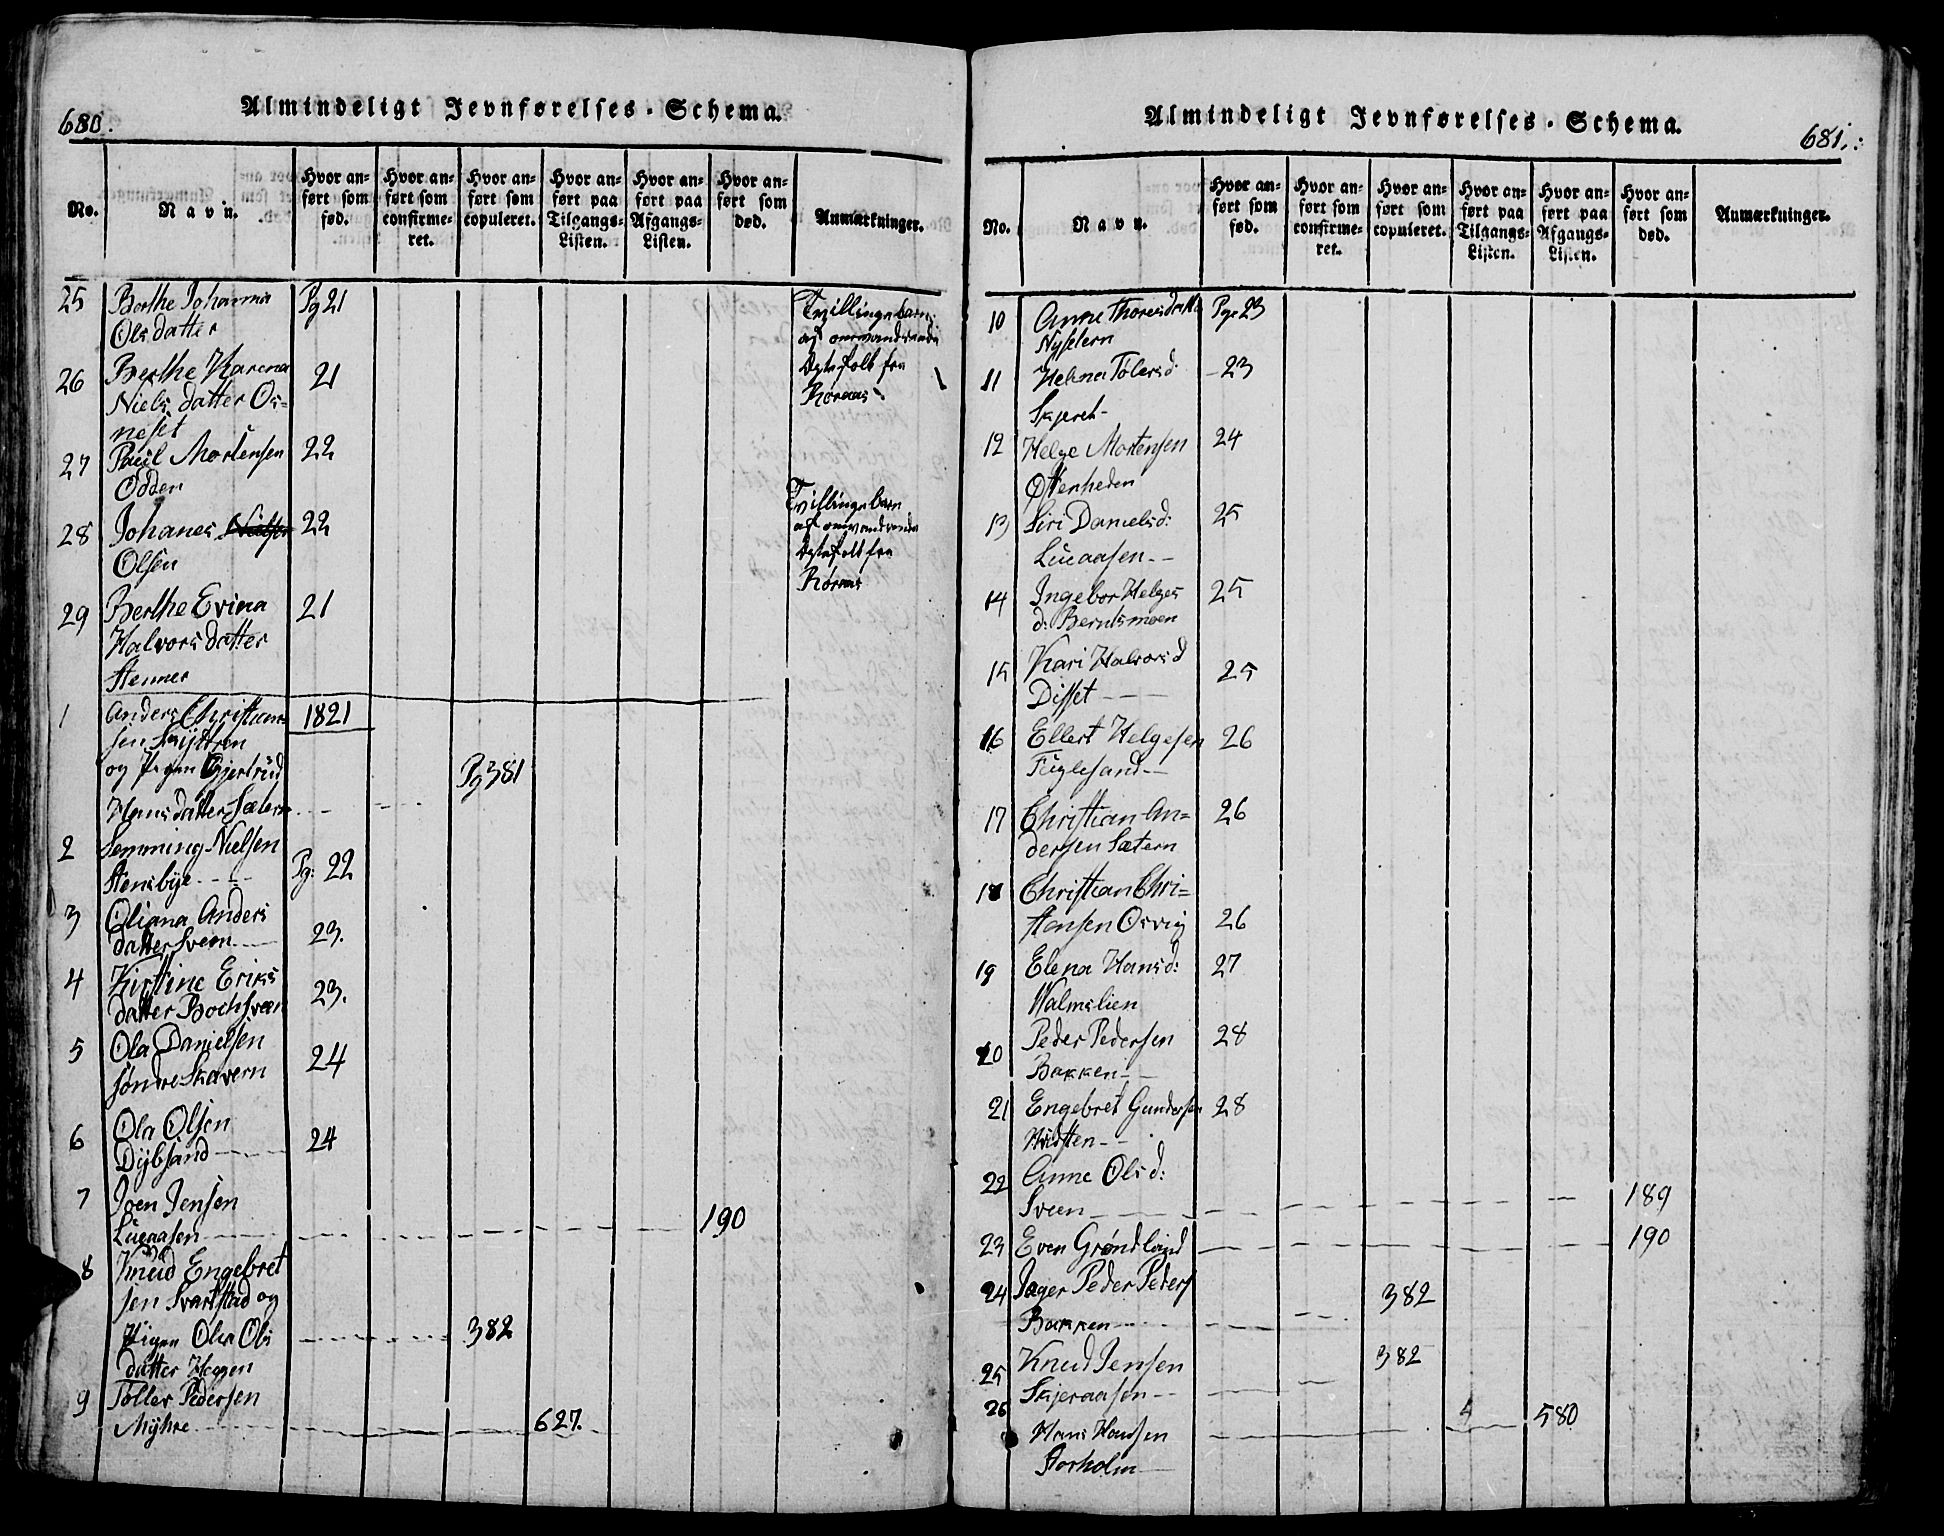 680.
Almindeligt Jevnførelses-Schema.
No.
Navn.
Hvor an=
ført som
fød.
Hvor an=
ført som
confirme=
ret.
Hvor an=
ført som
copuleret.
Hvor an=
ført paa
Tilgangs=
Listen.
Hvor an=
ført paa
Afgangs=
Listen.
Hvor an=
ført som
død.
Anmærkninger.
25 Berthe Johanna Pg 21
Ols datter
Tvillingebarn
af omvandrende
folk fra
Roraas
26 Berthe Karena 21
Niels datter Os=
neset
27 Paul Mortensen 22
Odden
28 Johanes Nielsen 22
Olsen
Tvillingebarn
af omvandrende
folk fra
Röraas
29 Berthe Evina 21
Halvors datter
Stenner
1 Anders Christian= 1821
sen
og Pigen Gjertrud Pg 381
Hansdatter Sætern
2 Semming Nielsen
Stensbye Pg: 22
3 Oliana Anders
datter Sveen 23.
4 Kirstine Eriks
datter 23.
5 Ola Danielsen
søndre Skavern 24
6 Ola Olsen
Dybsand 24
7 Joen Jensen
Luaasen 190
8 Knud Engebret
sen Svartstad og
Pigen Olea Ols 382
datter Haagen
9 Toller Pedersen
Myhre 627.
681.
Almindeligt Jevnførelses-Schema.
No.
Navn.
Hvor an=
ført som
fød.
Hvor an=
ført som
confirme=
ret.
Hvor an=
ført som
copuleret.
Hvor an=
ført paa
Tilgangs=
Listen.
Hvor an=
ført paa
Afgangs=
Listen.
Hvor an=
ført som
død.
Anmærkninger.
10 Anne Thoresdatter Pg. 23
Nysetern
11 Helena Tølersd: 23
Skjeret
12 Helge Mortensen 24
Østenheden
13 Siri Danielsd: 25
Luaasen
14 Ingebor Helges 25
d: Berntsmoen
15 Kari Halvorsd 25
Disset
16 Ellert Helgesen 26
Fuglesand
17 Christian An= 26
dersen Sætern
18 Christian Chri=
stansen Osvig 26
19 Elena Hansd: 27
Malmslien
20 Peder Pedersen 28
Bakken
21 Engebret Gundersen 28
Hvidsten
22 Anne Olsd:
Sveen 189
23 Even Grøndland 190
24 Jager Peder Peders 382
Bakken
25 Knud Jensen 382
Skjeraasen
26 Hans Hansen 580
Storholm